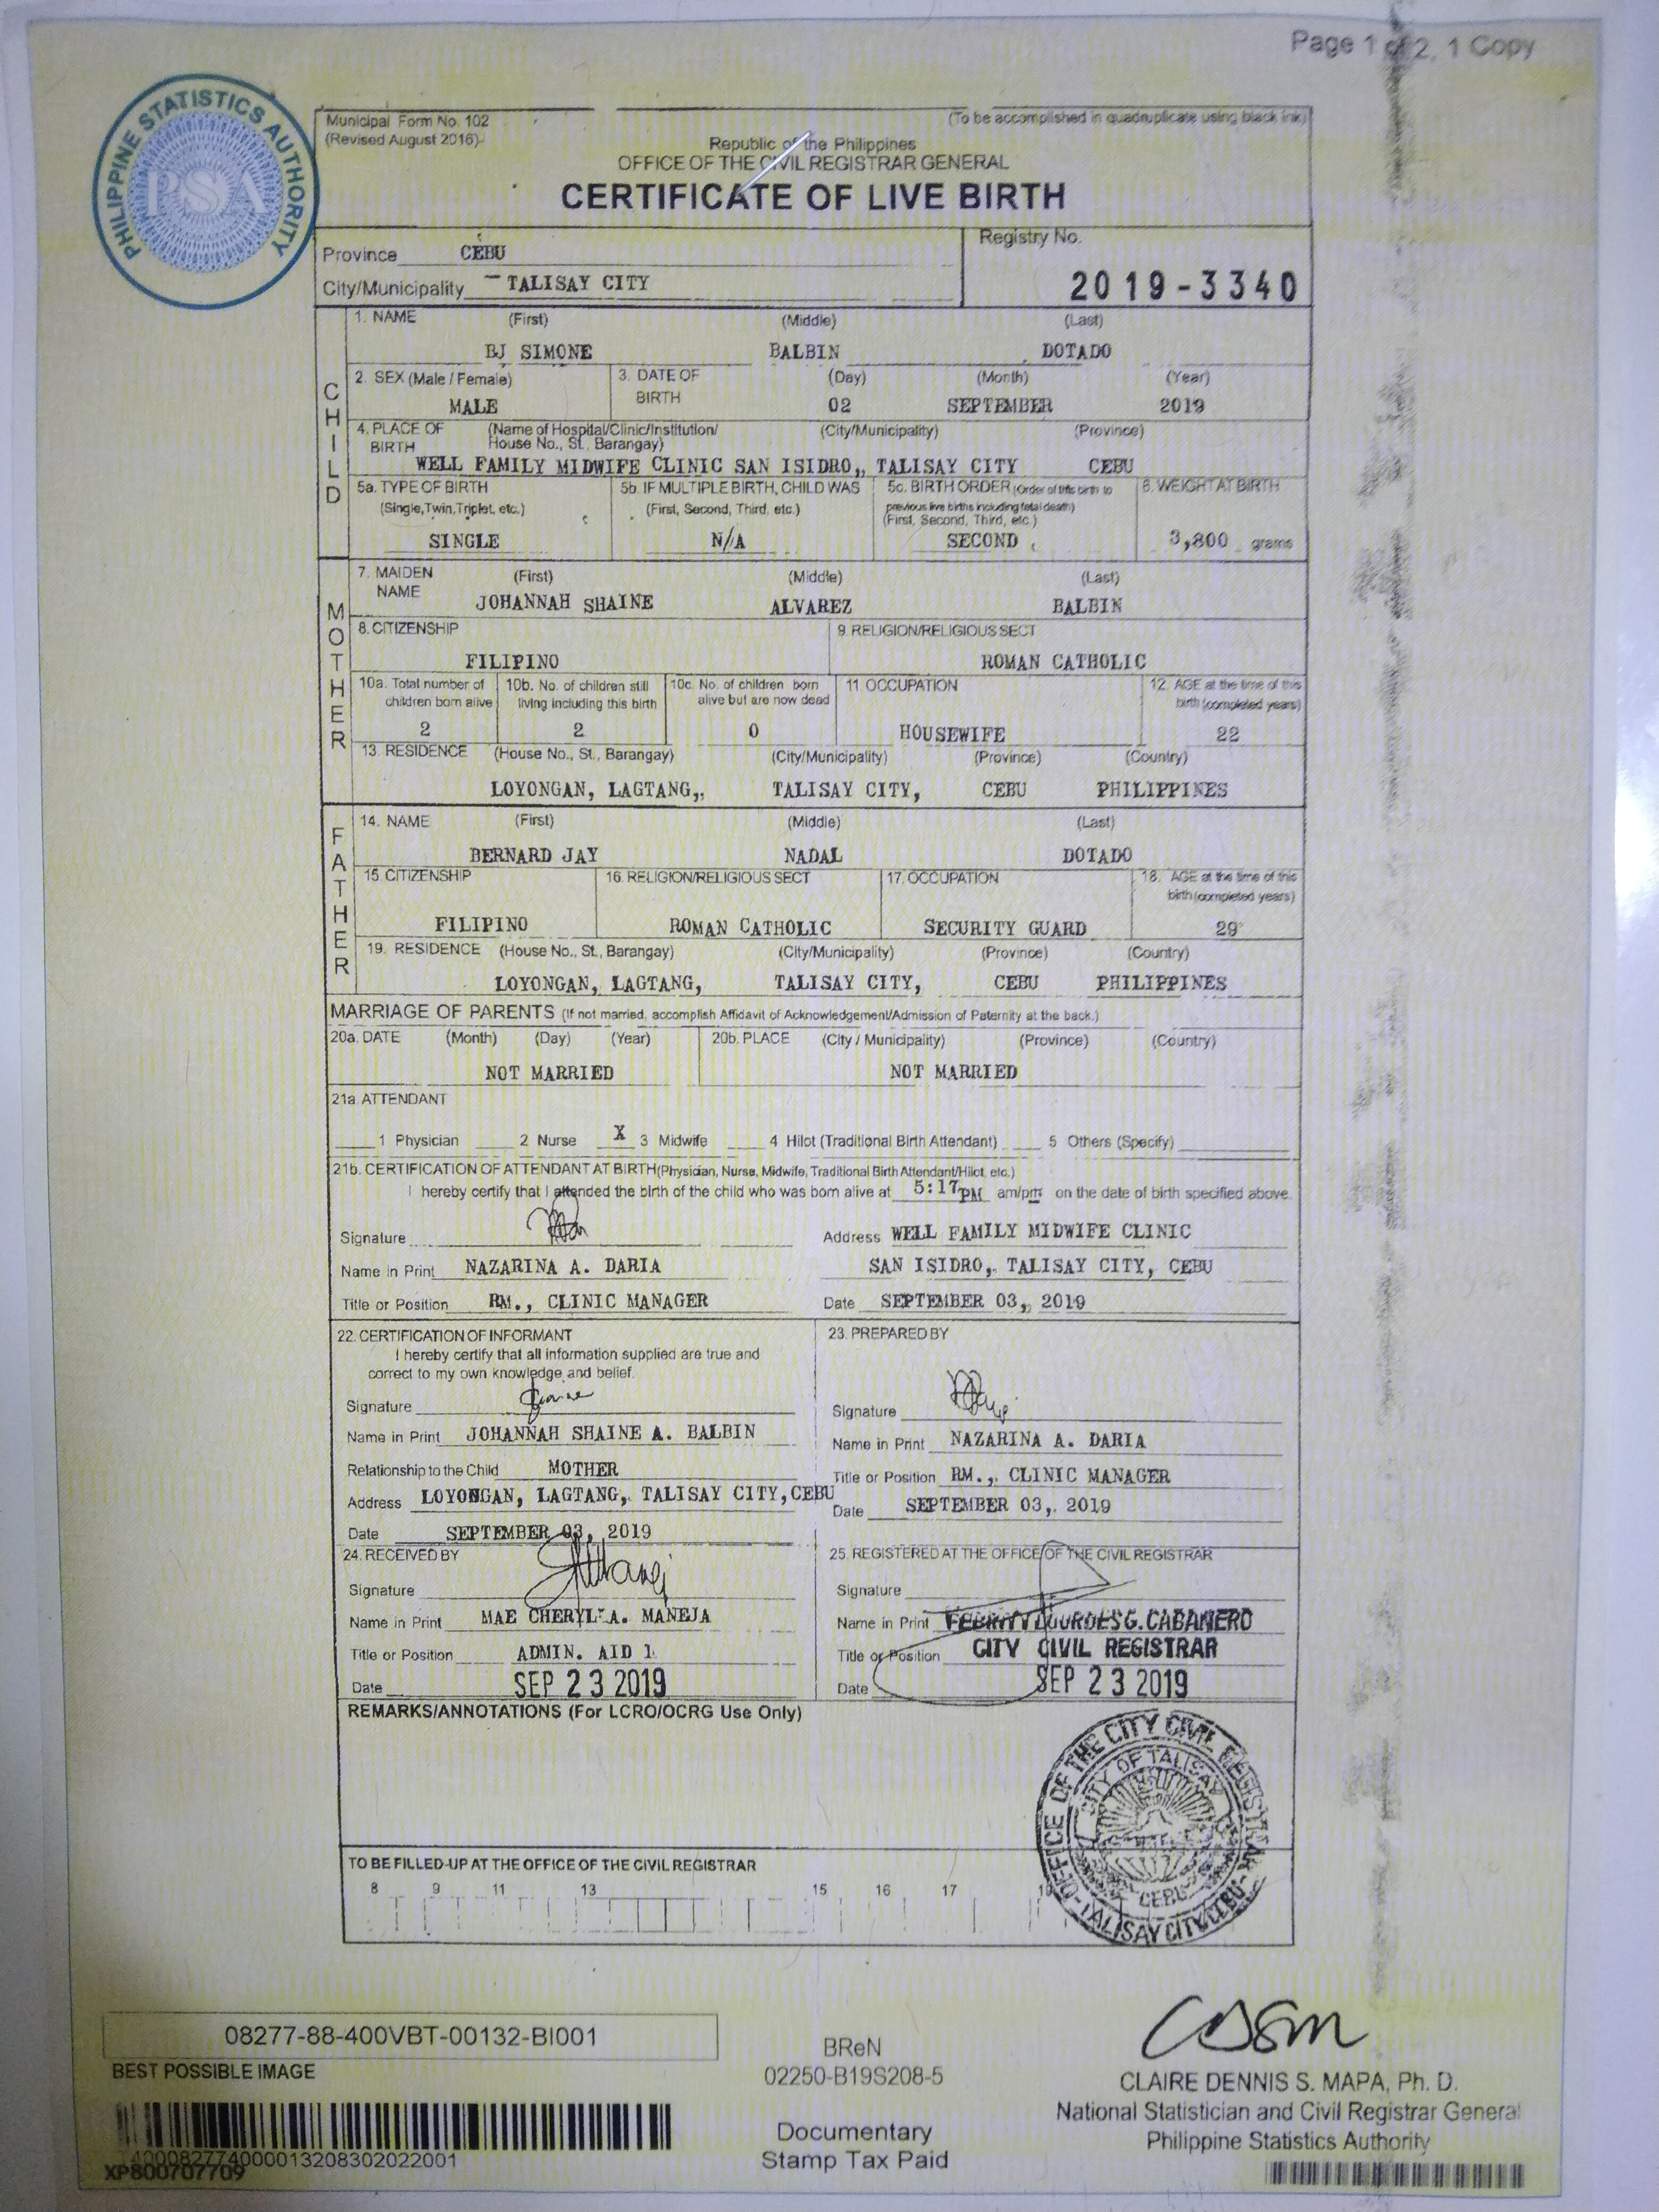 Page 1 of 2, 1 Copy
PHILIPPINE STATISTICS AUTHORITY
PSA
Municipal Form No. 102
(Revised August 2016)
(To be accomplished in quadruplicate using black ink)
Republic of the Philippines
OFFICE OF THE CIVIL REGISTRAR GENERAL
CERTIFICATE OF LIVE BIRTH
Province CEBU
Registry No.
City/Municipality TALISAY CITY
2019-3340
CHILD
1. NAME (First) (Middle) (Last)
BJ SIMONE BALBIN DOTADO
2. SEX (Male / Female) 3. DATE OF BIRTH (Day) (Month) (Year)
MALE 02 SEPTEMBER 2019
4. PLACE OF BIRTH (Name of Hospital/Clinic/Institution/ House No., St. Barangay) (City/Municipality) (Province)
WELL FAMILY MIDWIFE CLINIC SAN ISIDRO,, TALISAY CITY CEBU
5a. TYPE OF BIRTH 5b. IF MULTIPLE BIRTH, CHILD WAS 5c. BIRTH ORDER (Order of this birth to 6. WEIGHT AT BIRTH
(Single,Twin,Triplet, etc.) (First, Second, Third, etc.) previous live births including fetal death)
(First, Second, Third, etc.)
SINGLE N/A SECOND 3,800 grams
MOTHER
7. MAIDEN NAME (First) (Middle) (Last)
JOHANNAH SHAINE ALVAREZ BALBIN
8. CITIZENSHIP 9. RELIGION/RELIGIOUS SECT
FILIPINO ROMAN CATHOLIC
10a. Total number of children born alive 10b. No. of children still living including this birth 10c. No. of children born alive but are now dead 11 OCCUPATION 12. AGE at the time of this birth (completed years)
2 2 0 HOUSEWIFE 22
13. RESIDENCE (House No., St., Barangay) (City/Municipality) (Province) (Country)
LOYONGAN, LAGTANG,, TALISAY CITY, CEBU PHILIPPINES
FATHER
14. NAME (First) (Middle) (Last)
BERNARD JAY NADAL DOTADO
15. CITIZENSHIP 16. RELIGION/RELIGIOUS SECT 17. OCCUPATION 18. AGE at the time of this birth (completed years)
FILIPINO ROMAN CATHOLIC SECURITY GUARD 29
19. RESIDENCE (House No., St., Barangay) (City/Municipality) (Province) (Country)
LOYONGAN, LAGTANG, TALISAY CITY, CEBU PHILIPPINES
MARRIAGE OF PARENTS (If not married, accomplish Affidavit of Acknowledgement/Admission of Paternity at the back.)
20a. DATE (Month) (Day) (Year) 20b. PLACE (City / Municipality) (Province) (Country)
NOT MARRIED NOT MARRIED
21a. ATTENDANT
1 Physician 2 Nurse X 3 Midwife 4 Hilot (Traditional Birth Attendant) 5 Others (Specify)
21b. CERTIFICATION OF ATTENDANT AT BIRTH (Physician, Nurse, Midwife, Traditional Birth Attendant/Hilot, etc.)
I hereby certify that I attended the birth of the child who was born alive at 5:17PM am/pm on the date of birth specified above.
Signature Address WELL FAMILY MIDWIFE CLINIC
Name in Print NAZARINA A. DARIA SAN ISIDRO,, TALISAY CITY, CEBU
Title or Position RM., CLINIC MANAGER Date SEPTEMBER 03,, 2019
22. CERTIFICATION OF INFORMANT
I hereby certify that all information supplied are true and
correct to my own knowledge and belief.
Signature
Name in Print JOHANNAH SHAINE A. BALBIN
Relationship to the Child MOTHER
Address LOYONGAN, LAGTANG, TALISAY CITY, CEBU
Date SEPTEMBER 03, 2019
23. PREPARED BY
Signature
Name in Print NAZARINA A. DARIA
Title or Position RM.,, CLINIC MANAGER
Date SEPTEMBER 03,. 2019
24. RECEIVED BY
Signature
Name in Print MAE CHERYL A. MANEJA
Title or Position ADMIN. AID 1
Date SEP 23 2019
25. REGISTERED AT THE OFFICE OF THE CIVIL REGISTRAR
Signature
Name in Print LOURDES G. CABANERO
Title or Position CITY CIVIL REGISTRAR
Date SEP 23 2019
REMARKS/ANNOTATIONS (For LCRO/OCRG Use Only)
OFFICE OF THE CITY CIVIL REGISTRAR
CITY OF TALISAY
CEBU
TALISAY CITY, CEBU
TO BE FILLED-UP AT THE OFFICE OF THE CIVIL REGISTRAR
8 9 11 13 15 16 17 19
08277-88-400VBT-00132-BI001
BEST POSSIBLE IMAGE
XP800707709
BReN
02250-B19S208-5
Documentary
Stamp Tax Paid
CLAIRE DENNIS S. MAPA, Ph. D.
National Statistician and Civil Registrar General
Philippine Statistics Authority